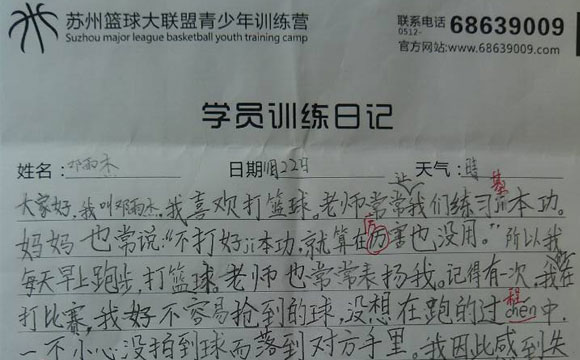 苏州篮球大联盟青少年训练营
Suzhou major league basketball youth training camp
联系电话 0512- 68639009
官方网站:www.68639009.com
学员训练日记
姓名: 邓雨杰 日期: 1月22日 天气: 晴
让 基
大家好,我叫邓雨杰,我喜欢打篮球。老师常常我们练习ji本功。
妈妈也常说:“不打好ji本功,就算在厉害也没用。”所以我
每天早上跑步,打篮球,老师也常常表扬我。记得有一次,我在
程
打比赛,我好不容易抢到的球,没想在跑的过chen中,
一不小心没拍到球而落到对方手里。我因此感到失